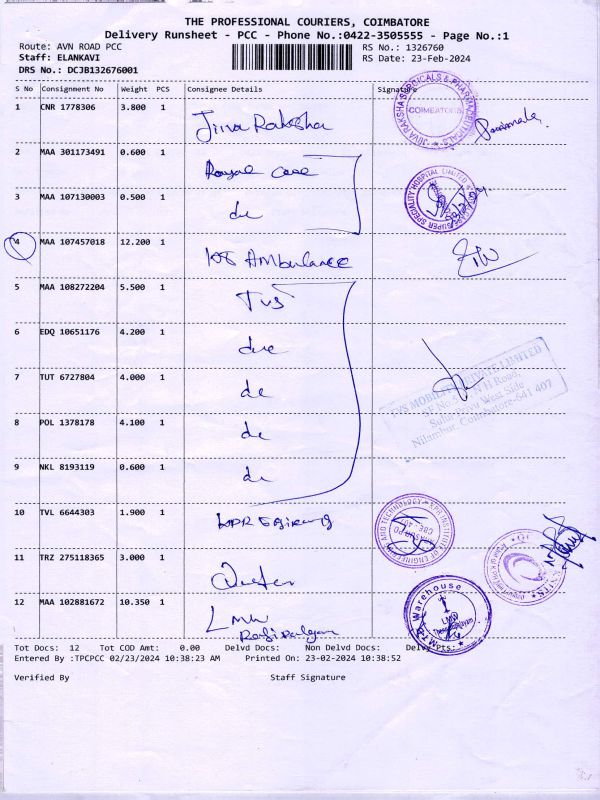 THE PROFESSIONAL COURIERS, COIMBATORE
Delivery Runsheet - PCC - Phone No.:0422-3505555 - Page No.:1
Route: AVN ROAD PCC RS No.: 1326760
Staff: ELANKAVI RS Date: 23-Feb-2024
DRS No.: DCJB132676001
S No Consignment No Weight PCS Consignee Details Signature
1 CNR 1778306 3.800 1 Jiva Raksha
JIVA RAKSHA SURGICALS & PHARMACEUTICALS COIMBATORE
2 MAA 301173491 0.600 1 Royal Care
3 MAA 107130003 0.500 1 do
SUPER SPECIALITY HOSPITAL LIMITED
4 MAA 107457018 12.200 1 108 AMbulance
5 MAA 108272204 5.500 1 TVS
6 EDQ 10651176 4.200 1
7 TUT 6727804 4.000 1 do
TVS MOBILITY PRIVATE LIMITED
8 POL 1378178 4.100 1 do
Nilambur, Coimbatore-641 407
9 NKL 8193119 0.600 1 do
10 TVL 6644303 1.900 1 KPR
KPR INSTITUTE OF ENGINEERING AND TECHNOLOGY
11 TRZ 275118365 3.000 1
12 MAA 102881672 10.350 1 LMW
Warehouse
LMW
Tot Docs: 12 Tot COD Amt: 0.00 Delvd Docs: Non Delvd Docs: Delvy Wpts:
Entered By :TPCPCC 02/23/2024 10:38:23 AM Printed On: 23-02-2024 10:38:52
Verified By Staff Signature